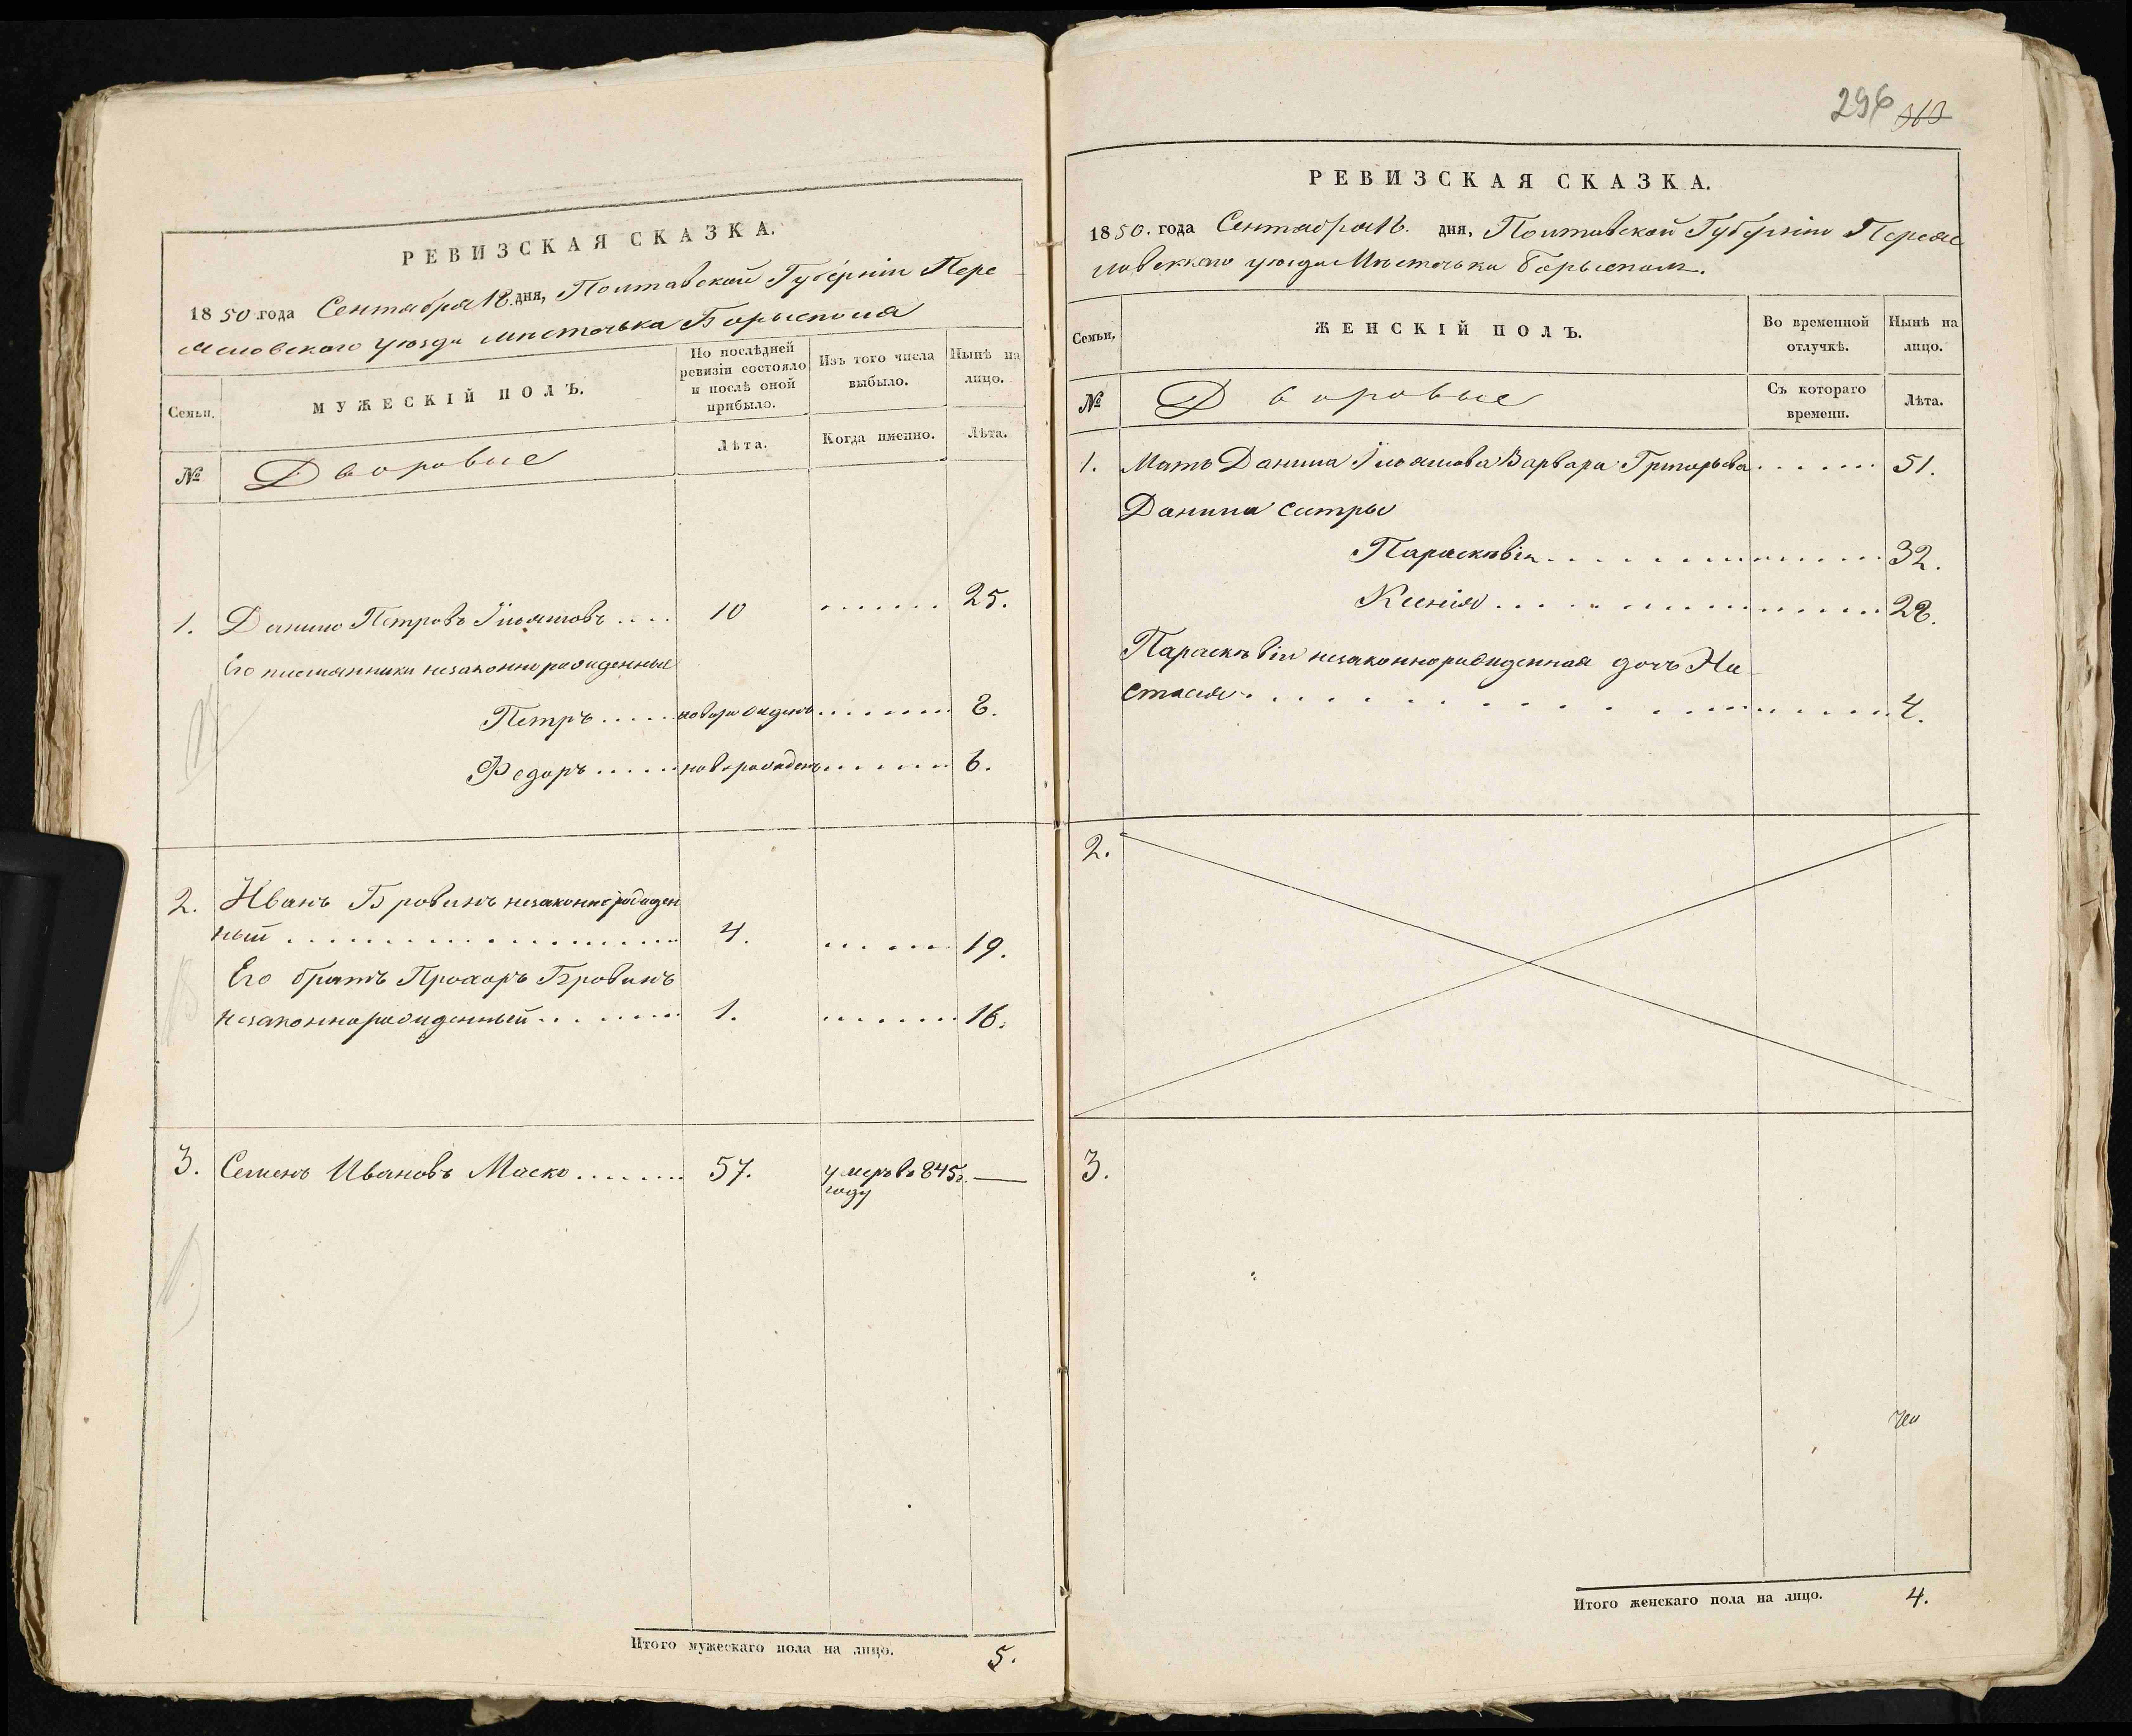 РЕВИЗСКАЯ СКАЗКА.
1850 года Сентября 18 дня, Полтавской Губерніи Пере
яславского уѣзда мѣсточька Борысполя
Семьи.
МУЖЕСКІЙ ПОЛЪ.
По послѣдней ревизіи состояло и послѣ оной прибыло.
Изъ того числа выбыло.
Нынѣ на лицо.
№
Дворовые
Лѣта.
Когда именно.
Лѣта.
1. Данило Петровъ .... 10 ....... 25.
Его племянники незаконнорожденные
Петръ ..... новорожденъ ........ 8.
Федоръ ..... новорожденъ ....... 6.
2. Иванъ Бровинъ незаконнорожден
ный ........ 4. ....... 19.
Его братъ Прохоръ Бровинъ
незаконнорожденный ........ 1. ....... 16.
3. Семенъ Ивановъ Маско ....... 57. умеръ въ 845м. —
году
Итого мужескаго пола на лицо. 5.
296 363
РЕВИЗСКАЯ СКАЗКА.
1850. года Сентября 18. дня, Полтавской Губерніи Переяс
лавского уѣзда Мѣсточька Борысполя.
Семьи.
ЖЕНСКІЙ ПОЛЪ.
Во временной отлучкѣ.
Нынѣ на лицо.
№
Дворовые
Съ котораго времени.
Лѣта.
1. Мать Данила Варвара Григорьева ...... 51.
Данила сестры
Парасковія ........ 32.
Ксенія ........ 28.
Парасковіи незаконнорожденная дочь На
стасія ........ 4.
2.
3.
Итого женскаго пола на лицо. 4.